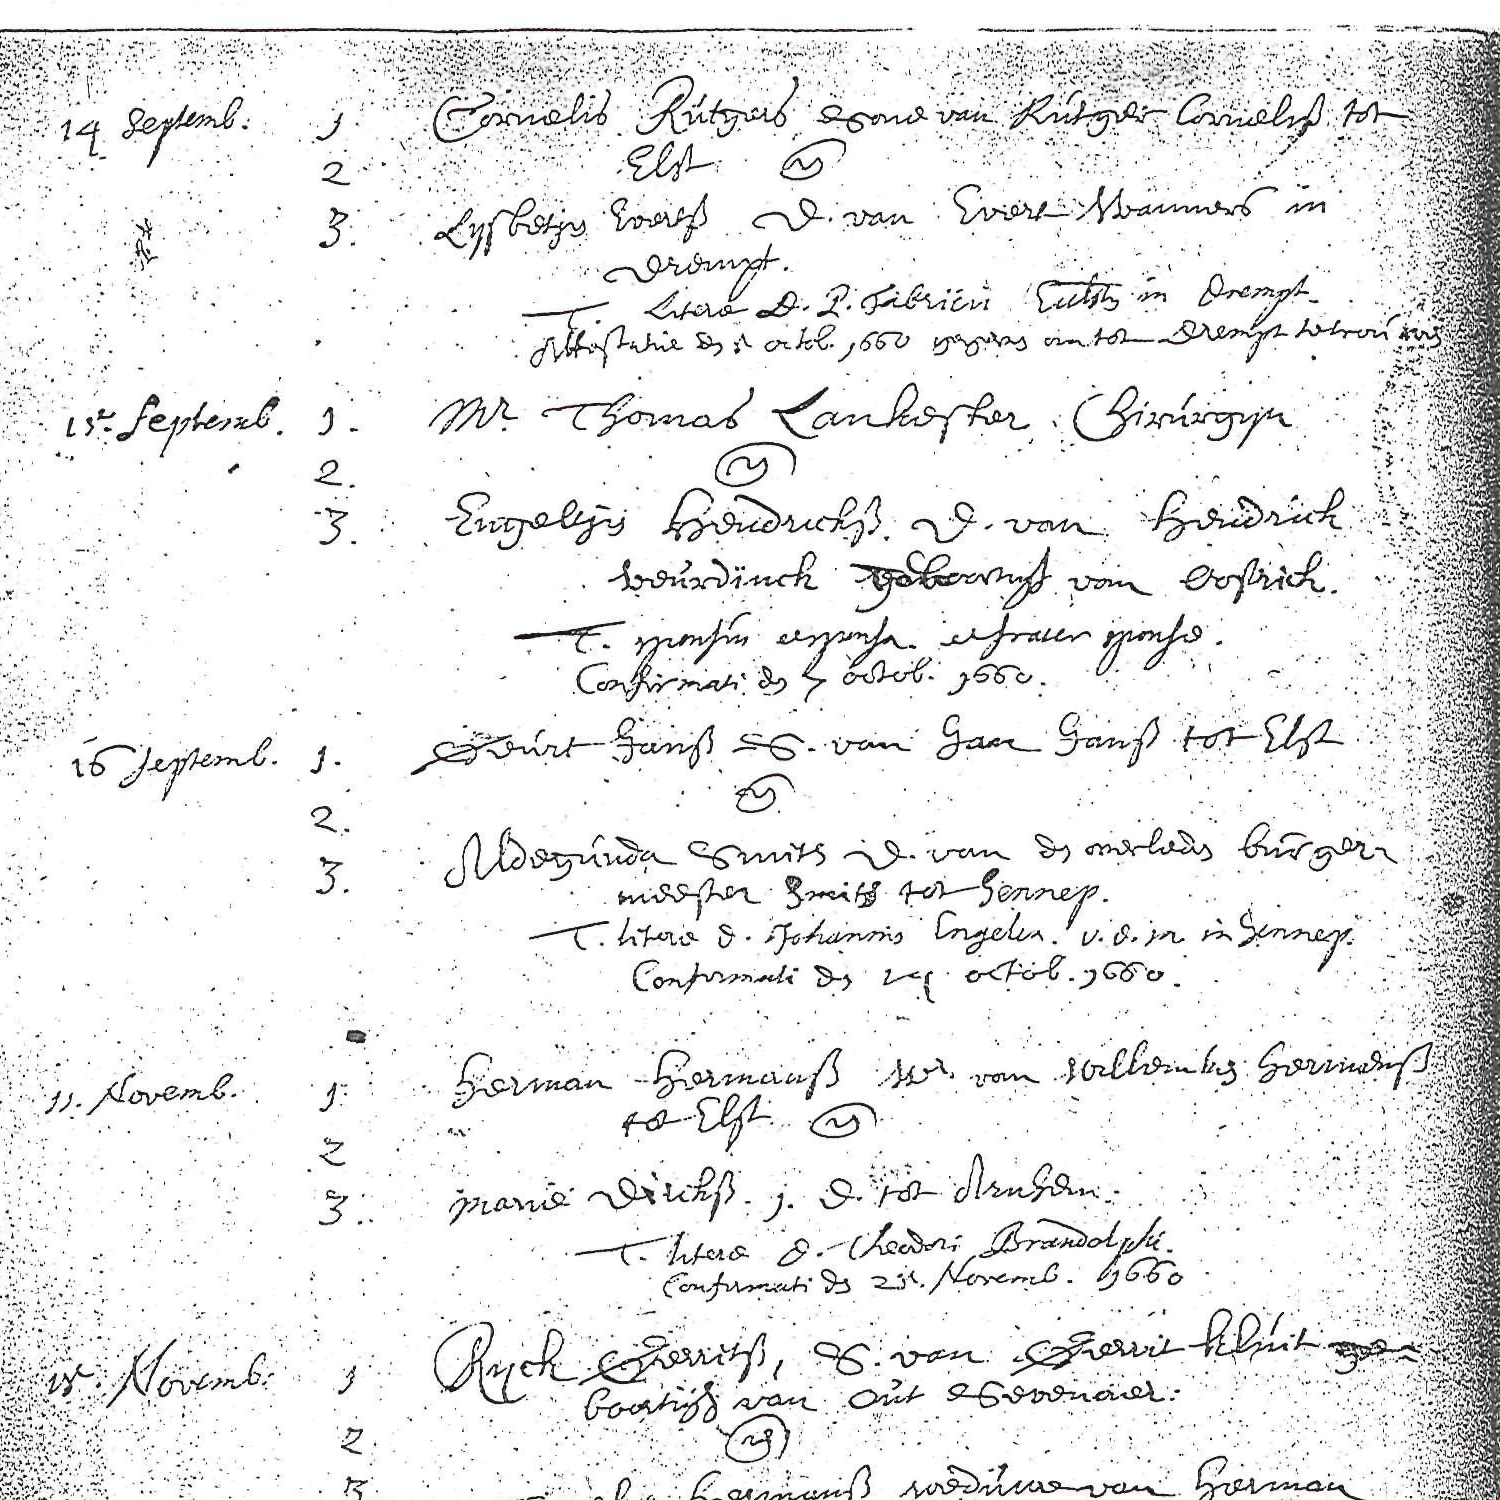 14 Septemb. 1. Cornelis Rütgers Sone van Rütger Cornelisß tot
2 Elst
3. Lÿsbetjn Evertß D. van Evert Wanners in
Drempt.
T. Litera D. P. Fabricii in Drempt.
Attestatie octob. 1660 gegeven om tot Drempt te
15 Septemb. 1. Mr Thomas Lankester Chirürgijn
2.
3. Engeltjn Hendrickß. D. van Hendrick
Veürdinck geboortigh van Oostrick.
T. sponsus et sponsa. et frater sponsæ.
Confirmati den 7 octob. 1660.
16 Septemb. 1. Geürt Janß S. van Jan Janß tot Elst
2.
3. Aldegünda Smits D. van den overleden bürger
meester Smits tot Gennep.
T. litera d. Johannis Engelen. v. d. m. in Gennep.
Confirmati den octob. 1660.
11. Novemb. 1. Herman Hermanß Wr. van Willemken Hermanß
tot Elst
2
3. Marie Dirckß. j. d. tot Arnhem.
T. litera d. Theodori Brandolphi.
Confirmati den 25. Novemb. 1660
15. Novemb. 1 Ryck Gerritß, S. van Gerrit Klüit ge=
boortigh van Out Sevenaer.
2
3 Hermanß wedüwe van Herman